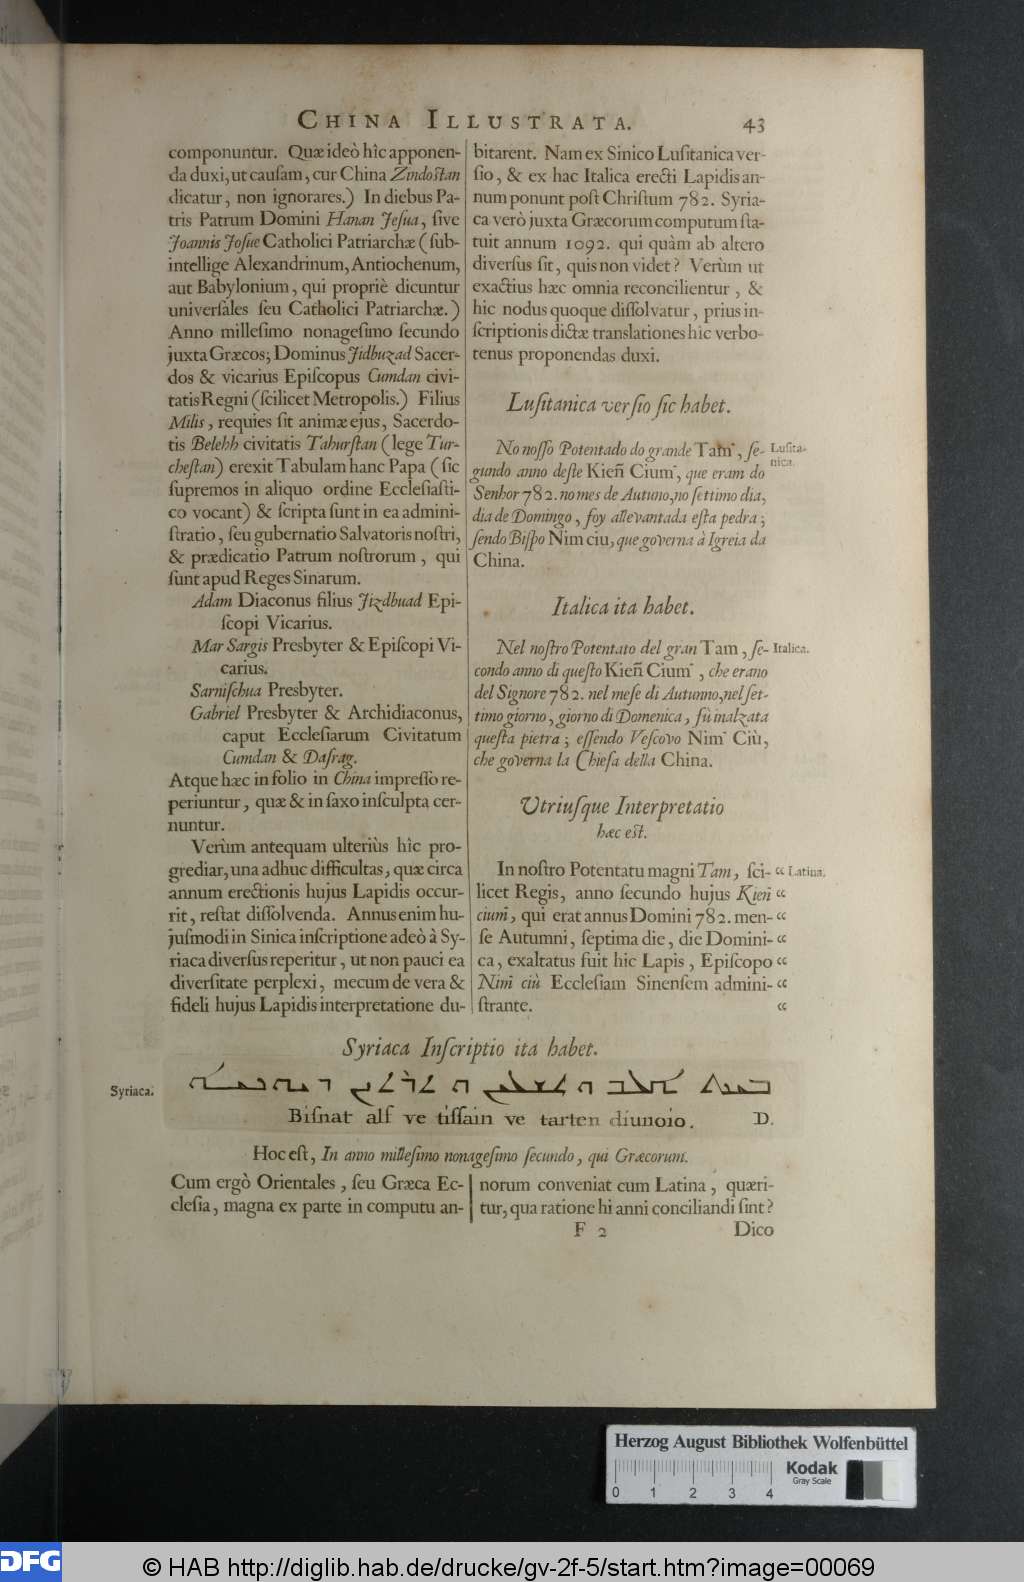 CHINA ILLUSTRATA. 43
componuntur. Quæ ideò hìc apponen-
da duxi, ut causam, cur China Zindostan
dicatur, non ignorares.) In diebus Pa-
tris Patrum Domini Hanan Jesua, sive
Joannis Josue Catholici Patriarchæ (sub-
intellige Alexandrinum, Antiochenum,
aut Babylonium, qui propriè dicuntur
universàles seu Catholici Patriarchæ.)
Anno millesimo nonagesimo secundo
juxta Græcos; Dominus Jidbuzad Sacer-
dos & vicarius Episcopus Cumdan civi-
tatis Regni (scilicet Metropolis.) Filius
Milis, requies sit animæ ejus, Sacerdo-
tis Belehh civitatis Tahurstan (lege Tur-
chestan) erexit Tabulam hanc Papa (sic
supremos in aliquo ordine Ecclesiasti-
co vocant) & scripta sunt in ea admini-
stratio, seu gubernatio Salvatoris nostri,
& prædicatio Patrum nostrorum, qui
sunt apud Reges Sinarum.
Adam Diaconus filius Jizdbuad Epi-
scopi Vicarius.
Mar Sargis Presbyter & Episcopi Vi-
carius.
Sarnischua Presbyter.
Gabriel Presbyter & Archidiaconus,
caput Ecclesiarum Civitatum
Cumdan & Dasrag.
Atque hæc in folio in China impresso re-
periuntur, quæ & in saxo insculpta cer-
nuntur.
Verùm antequam ulteriùs hìc pro-
grediar, una adhuc difficultas, quæ circa
annum erectionis hujus Lapidis occur-
rit, restat dissolvenda. Annus enim hu-
jusmodi in Sinica inscriptione adeò à Sy-
riaca diversus reperitur, ut non pauci ea
diversitate perplexi, mecum de vera &
fideli hujus Lapidis interpretatione du-
bitarent. Nam ex Sinico Lusitanica ver-
sio, & ex hac Italica erecti Lapidis an-
num ponunt post Christum 782. Syria-
ca verò juxta Græcorum computum sta-
tuit annum 1092. qui quàm ab altero
diversus sit, quis non videt? Verùm ut
exactius hæc omnia reconcilientur, &
hic nodus quoque dissolvatur, prius in-
scriptionis dictæ translationes hìc verbo-
tenus proponendas duxi.
Lusitanica versio sic habet.
No nosso Potentado do grande Tam̄, se-
gundo anno deste Kieñ Cium̄, que eram do
Senhor 782. no mes de Autuno, no settimo dia,
dia de Domingo, foy allevantada esta pedra;
sendo Bispo Nim ciu, que governa à Igreia da
China.
Lusita-
nica.
Italica ita habet.
Nel nostro Potentato del gran Tam, se-
condo anno di questo Kieñ Cium̄, che erano
del Signore 782. nel mese di Autunno, nel set-
timo giorno, giorno di Domenica, fù inalzata
questa pietra; essendo Vescovo Nim̄ Ciù,
che governa la Chiesa della China.
Italica.
Utriusque Interpretatio
hæc est.
In nostro Potentatu magni Tam, sci- “ Latina.
licet Regis, anno secundo hujus Kieñ “
cium̄, qui erat annus Domini 782. men- “
se Autumni, septima die, die Domini- “
ca, exaltatus fuit hic Lapis, Episcopo “
Nim̄ ciù Ecclesiam Sinensem admini- “
strante. “
Syriaca Inscriptio ita habet.
Syriaca.
Bisnat alf ve tissain ve tarten diunoio. D.
Hoc est, In anno millesimo nonagesimo secundo, qui Græcorum.
Cum ergò Orientales, seu Græca Ec-
clesia, magna ex parte in computu an-
norum conveniat cum Latina, quæri-
tur, qua ratione hi anni conciliandi sint?
F 2 Dico
Herzog August Bibliothek Wolfenbüttel
0 1 2 3 4
Kodak
Gray Scale
DFG
© HAB http://diglib.hab.de/drucke/gv-2f-5/start.htm?image=00069